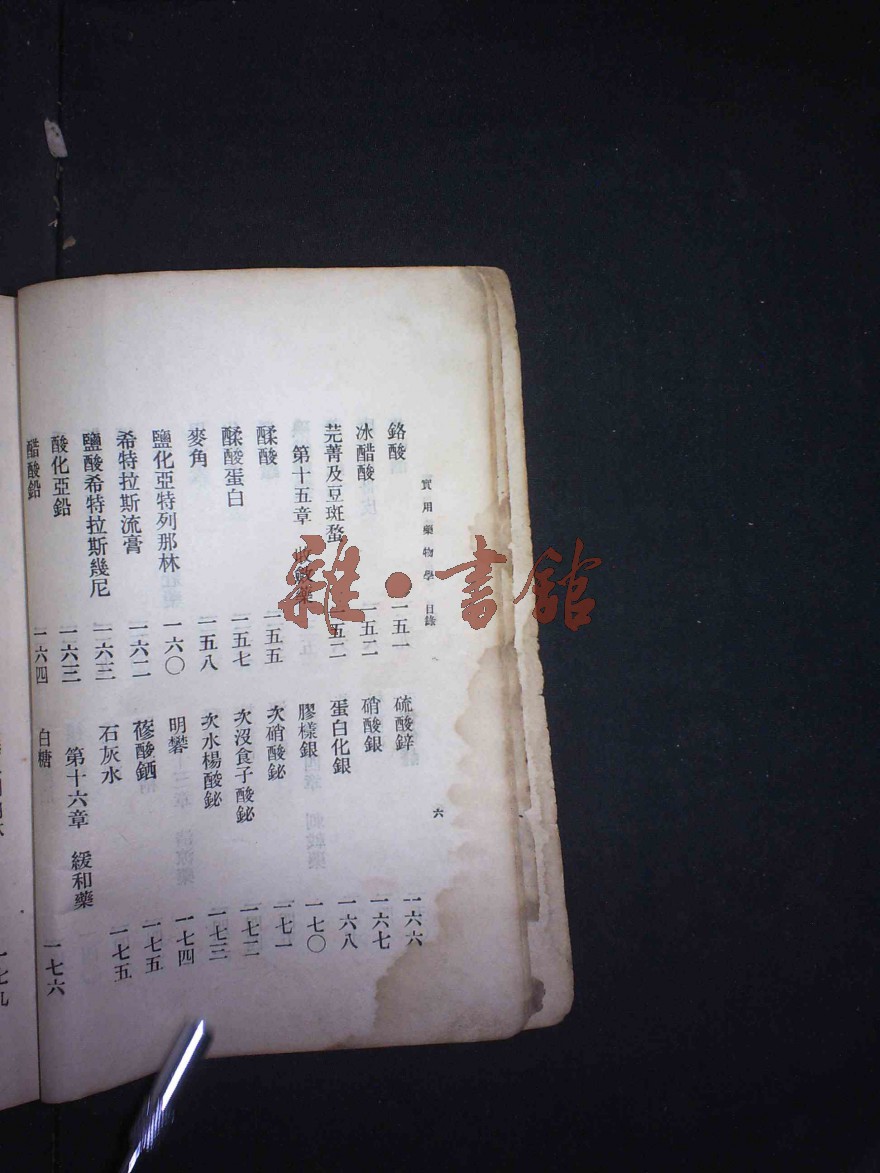 實用藥物學 目錄 六
鉻酸 一五一
冰醋酸 一五二
芫菁及豆斑蝥 一五二
第十五章 收斂藥
鞣酸 一五五
鞣酸蛋白 一五七
麥角 一五八
鹽化亞特列那林 一六〇
希特拉斯流膏 一六二
鹽酸希特拉斯幾尼 一六三
酸化亞鉛 一六三
醋酸鉛 一六四
硫酸鋅 一六六
硝酸銀 一六七
蛋白化銀 一六八
膠樣銀 一七〇
次硝酸鉍 一七一
次沒食子酸鉍 一七二
次水楊酸鉍 一七三
明礬 一七四
蓚酸鍶 一七五
石灰水 一七五
第十六章 緩和藥
白糖 一七六
雜·書館